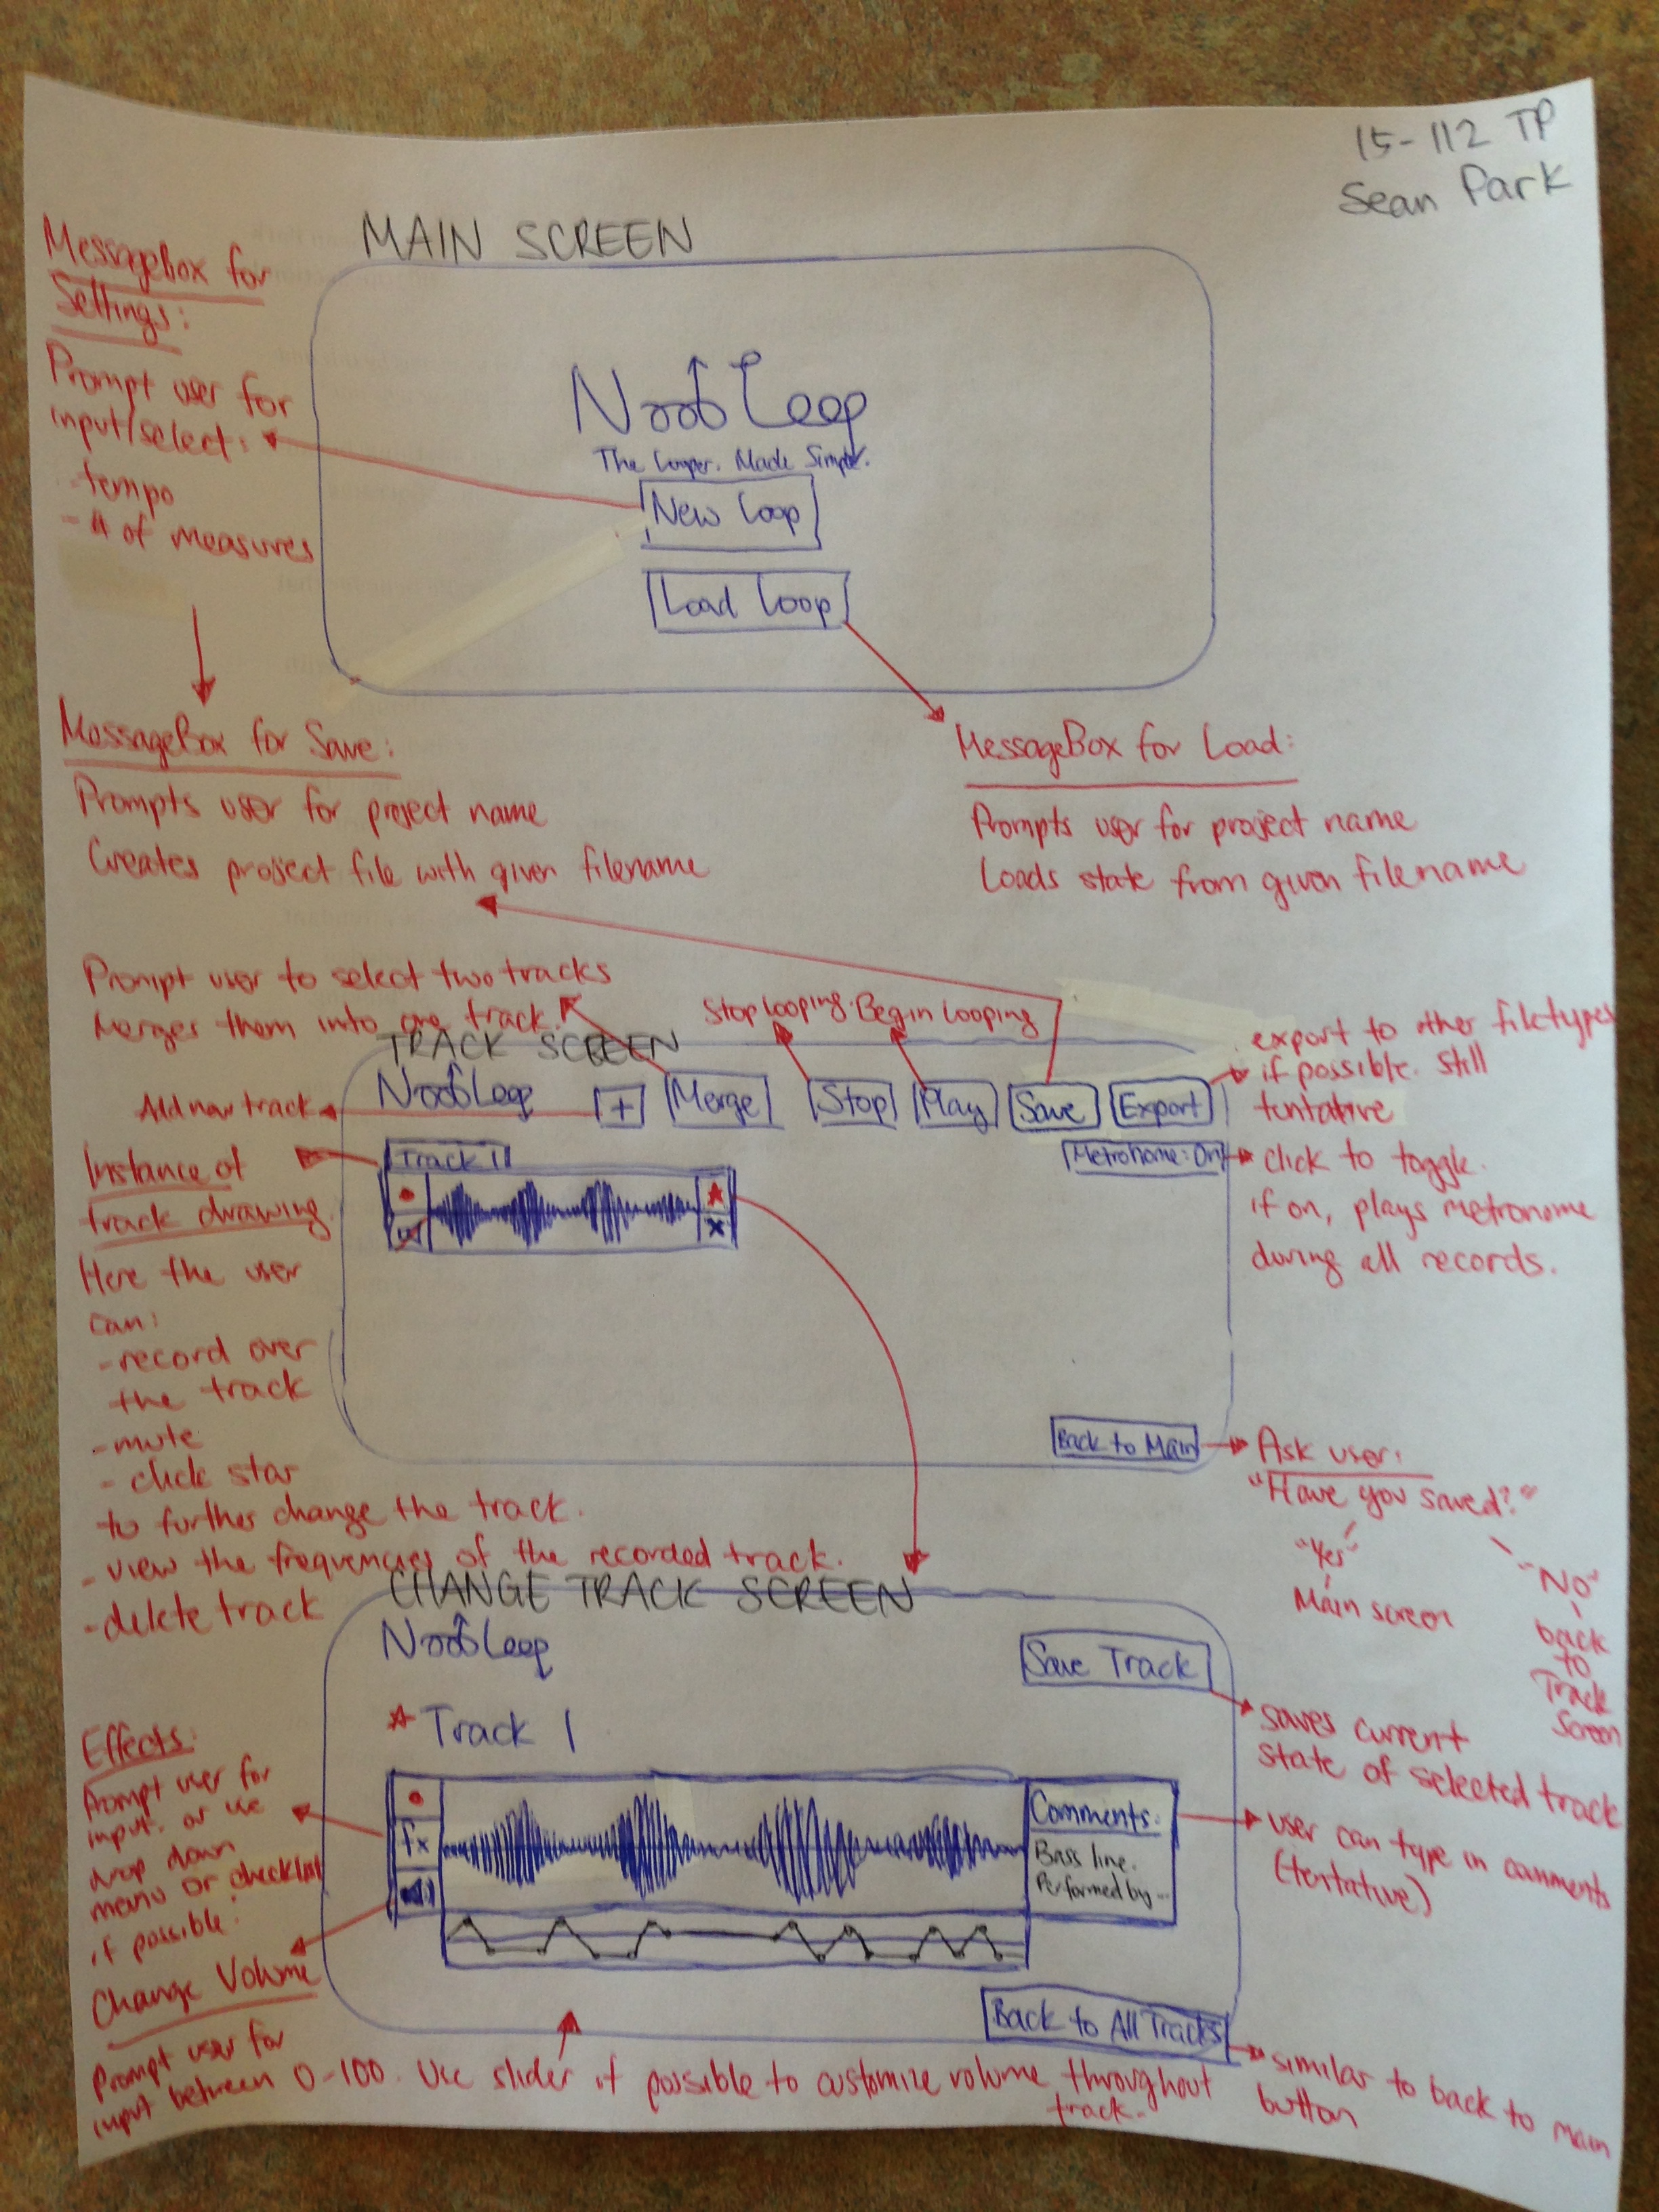 15-112 TP
Sean Park
MAIN SCREEN
MessageBox for
Settings:
Prompt user for
input/select:
- tempo
- # of measures
Noob Loop
The Looper. Made Simple.
New Loop
Load Loop
MessageBox for Save:
Prompts user for project name
Creates project file with given filename
MessageBox for Load:
Prompts user for project name
Loads state from given filename
Prompt user to select two tracks
Merges them into one track.
Stop looping.
Begin looping
export to other filetypes
if possible. still
tentative
TRACK SCREEN
NoobLoop
+
Merge
Stop
Play
Save
Export
Add new track
Metronome: On
click to toggle.
if on, plays metronome
during all records.
Track 1
Instance of
track drawing.
Here the user
can:
- record over
the track
- mute
- click star
to further change the track.
- view the frequencies of the recorded track.
- delete track
Back to Main
Ask user:
"Have you saved?"
"Yes"
Main screen
"No"
back
to
Track
Screen
CHANGE TRACK SCREEN
NoobLoop
Save Track
saves current
state of selected track
Track 1
Effects:
Prompt user for
input. or use
drop down
menu or checklist
if possible.
fx
Comments:
Bass line.
Performed by...
user can type in comments
(tentative)
Change Volume
Prompt user for
input between 0-100. Use slider if possible to customize volume throughout
track.
Back to All Tracks
similar to back to main
button